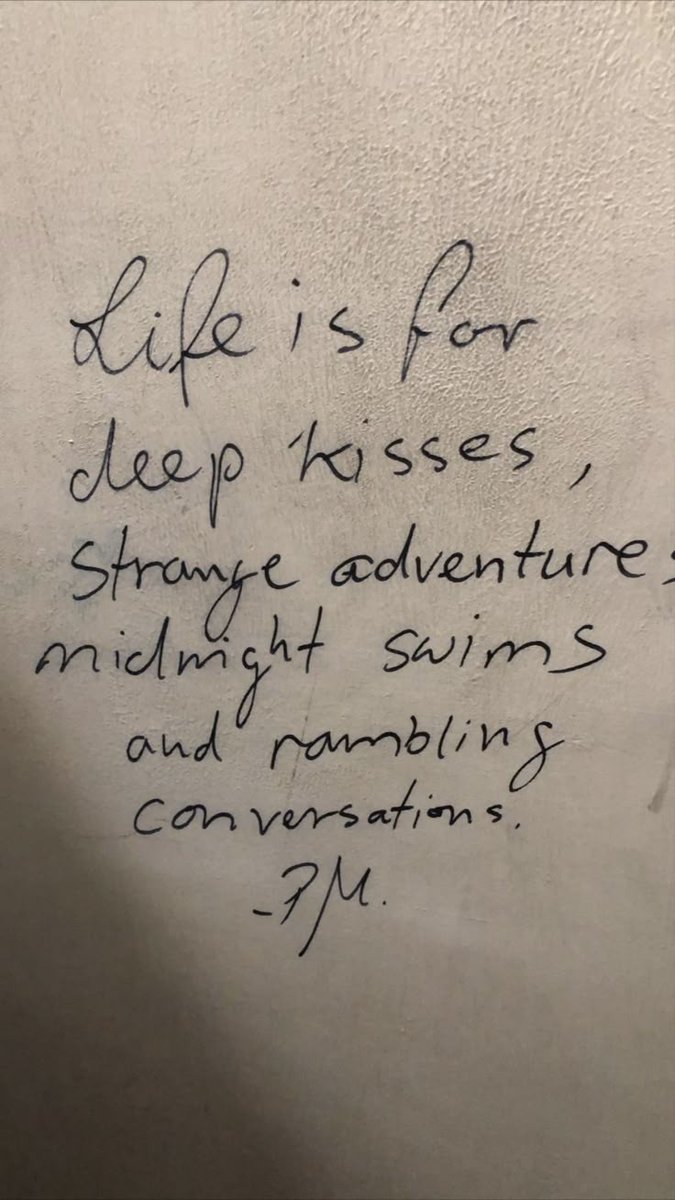 Life is for
deep kisses,
strange adventures
midnight swims
and rambling
conversations.
-PM.